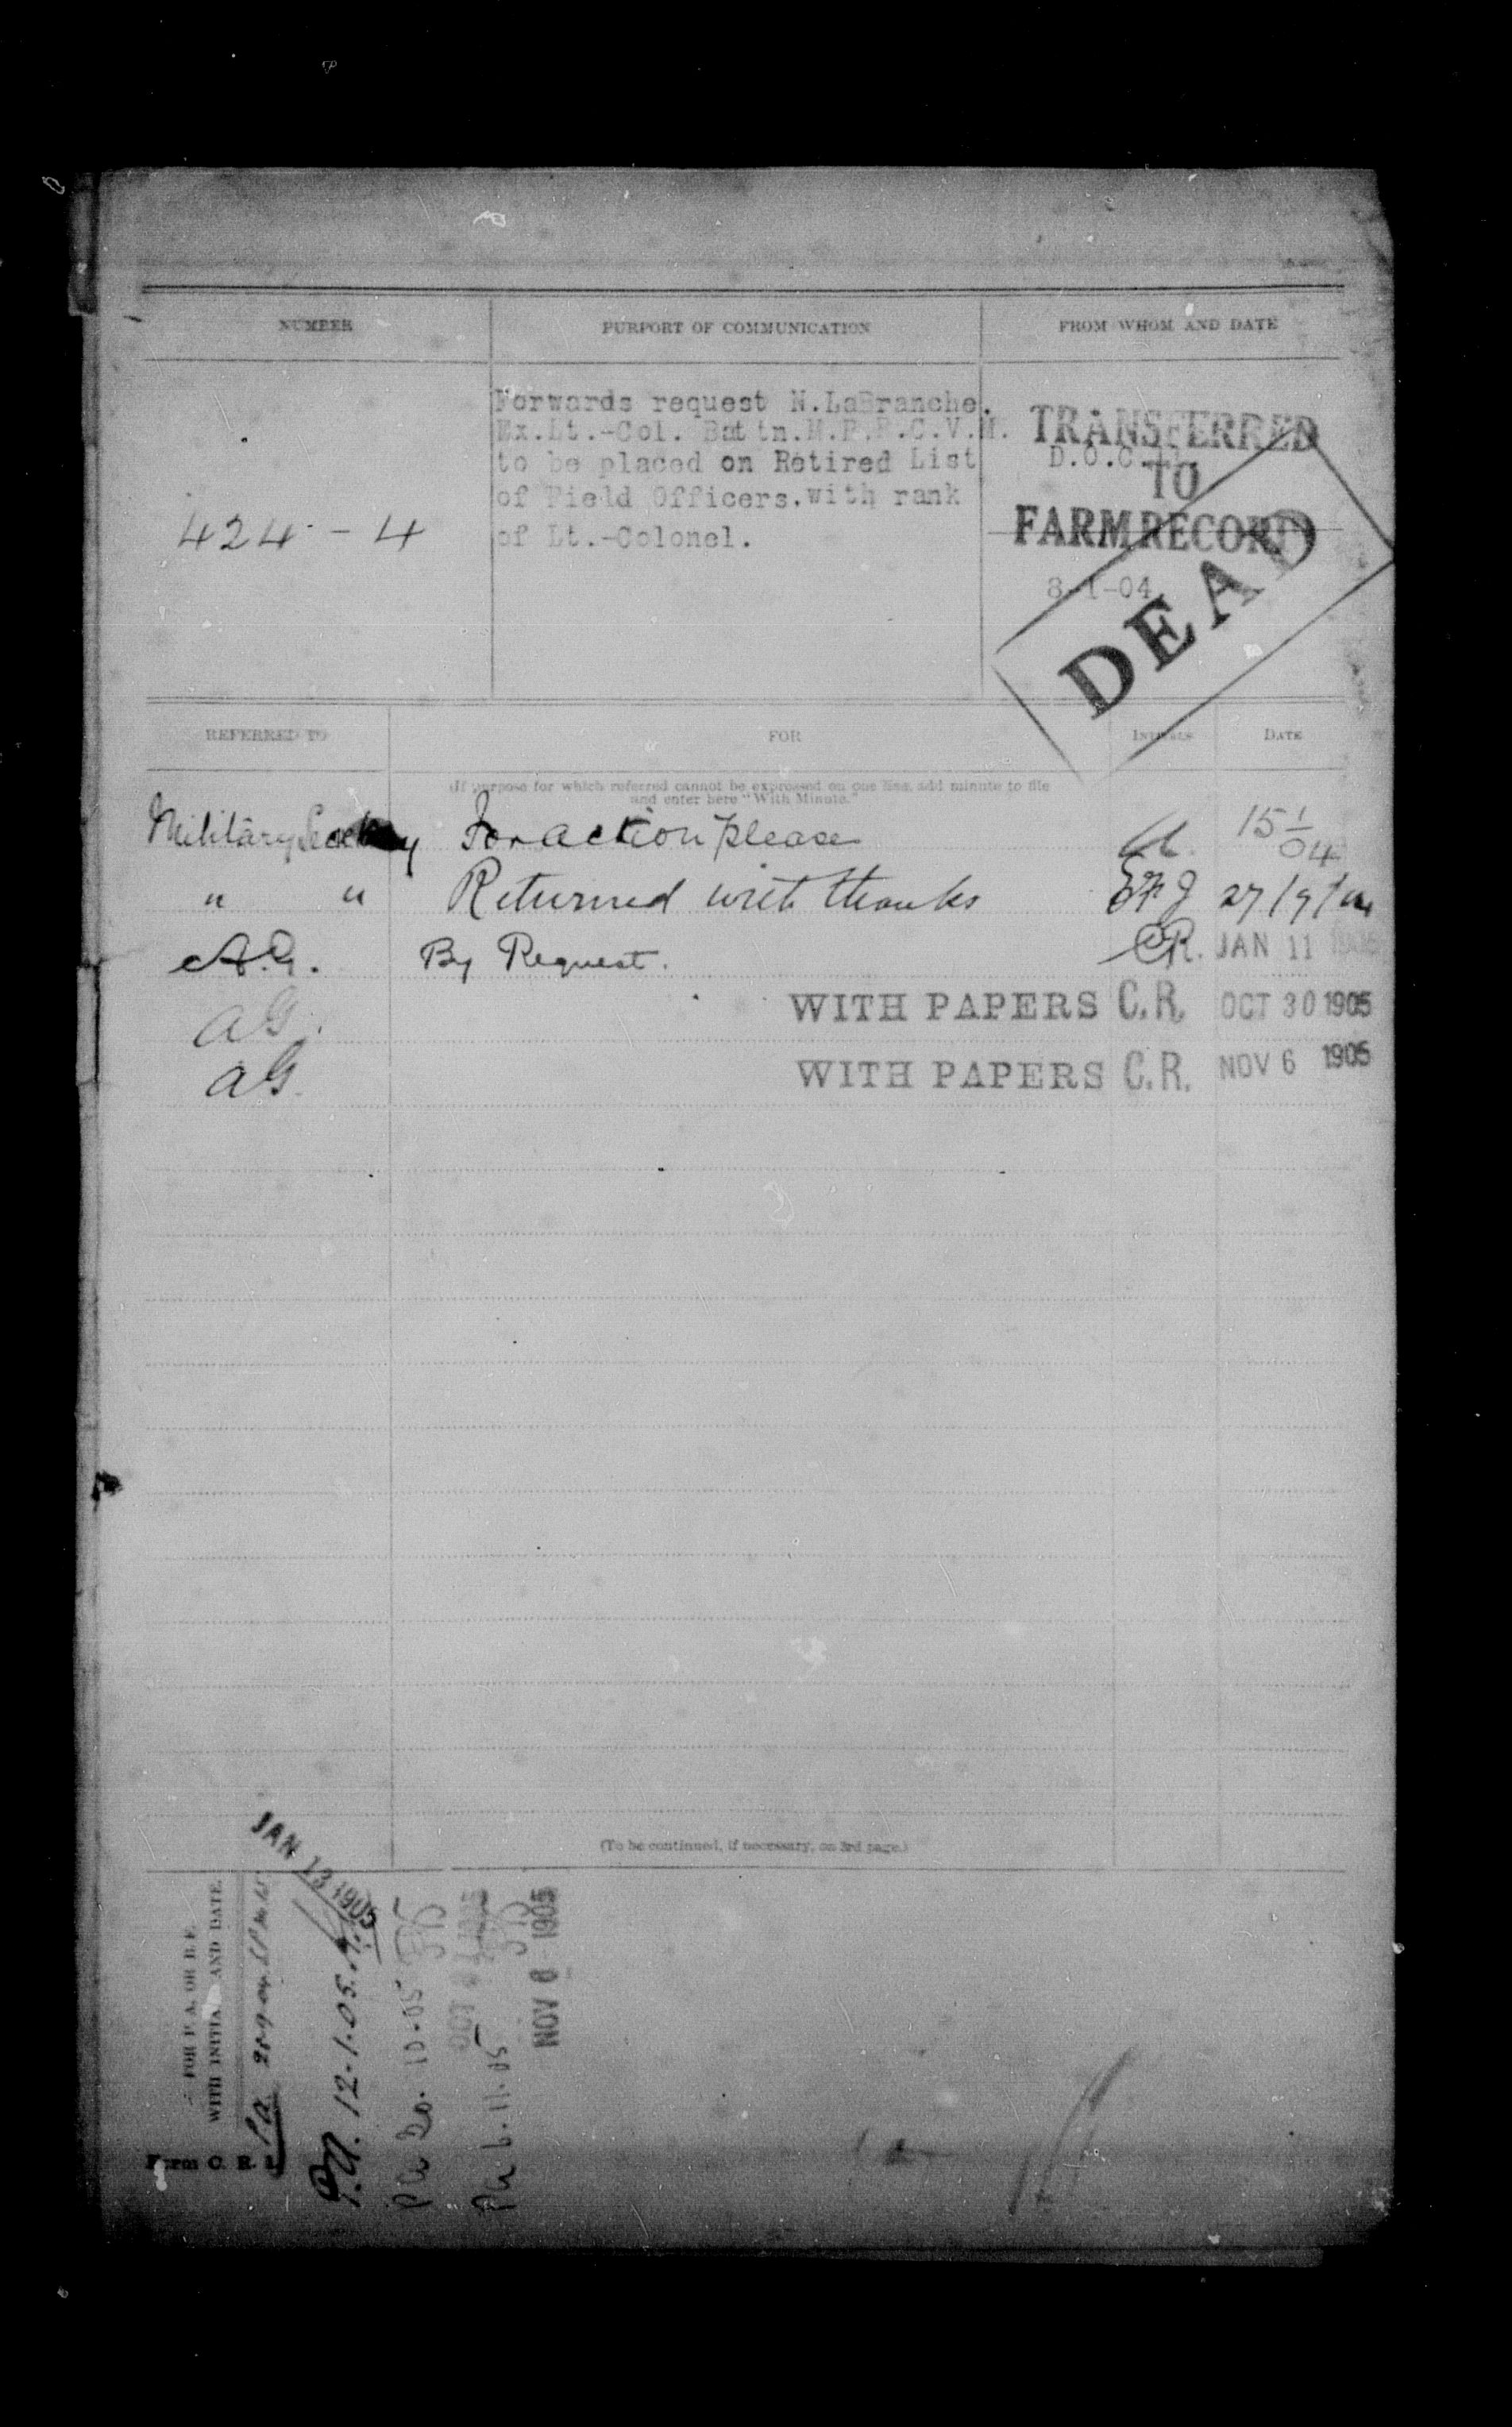 NUMBER
PURPORT OF COMMUNICATION
FROM WHOM AND DATE
424 - 4
Forwards request N.LaBranche.
Ex.Lt.-Col. Battn.M.P.R.C.V.M.
to be placed on Retired List
of Field Officers.with rank
of Lt.-Colonel.
TRANSFERRED
D.O.C.
TO
FARM RECORD
8-1-04
DEAD
REFERRED TO
FOR
INITIALS
DATE
(If purpose for which referred cannot be expressed on one line, add minute to file
and enter here "With Minute."
Military Secretary For action please 15 1/04
" " Returned with thanks 27/9/04
A.G. By Request. C.R. JAN 11 1905
AG. WITH PAPERS C.R. OCT 30 1905
AG. WITH PAPERS C.R. NOV 6 1905
(To be continued, if necessary, on 3rd page.)
FOR P. A. OR B.F.
WITH INITIAL AND DATE.
P.A.
JAN 13 1905
P.A. 12-1.05.
PA 30.10-05
PA 6.11.05
NOV 6 1905
Form C. R.